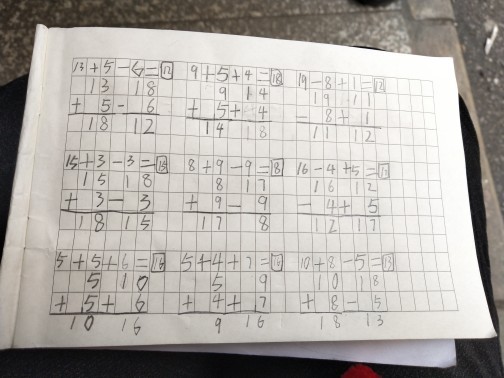 13+5-6=12 9+5+4=18 19-8+1=12
13 18 9 14 19 11
+ 5 - 6 + 5 + 4 - 8 + 1
18 12 14 18 11 12
15+3-3=15 8+9-9=8 16-4+5=
15 18 8 17 16 12
+ 3 - 3 + 9 - 9 - 4 + 5
18 15 17 8 12 17
5+5+6=16 5+4+7= 10+8-5=13
5 10 5 9 10 18
+ 5 + 6 + 4 + 7 + 8 - 5
10 16 9 16 18 13